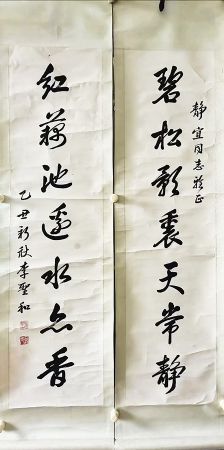 静宜同志雅正
碧松影里天常静
红藕池边水亦香
乙丑新秋李圣和